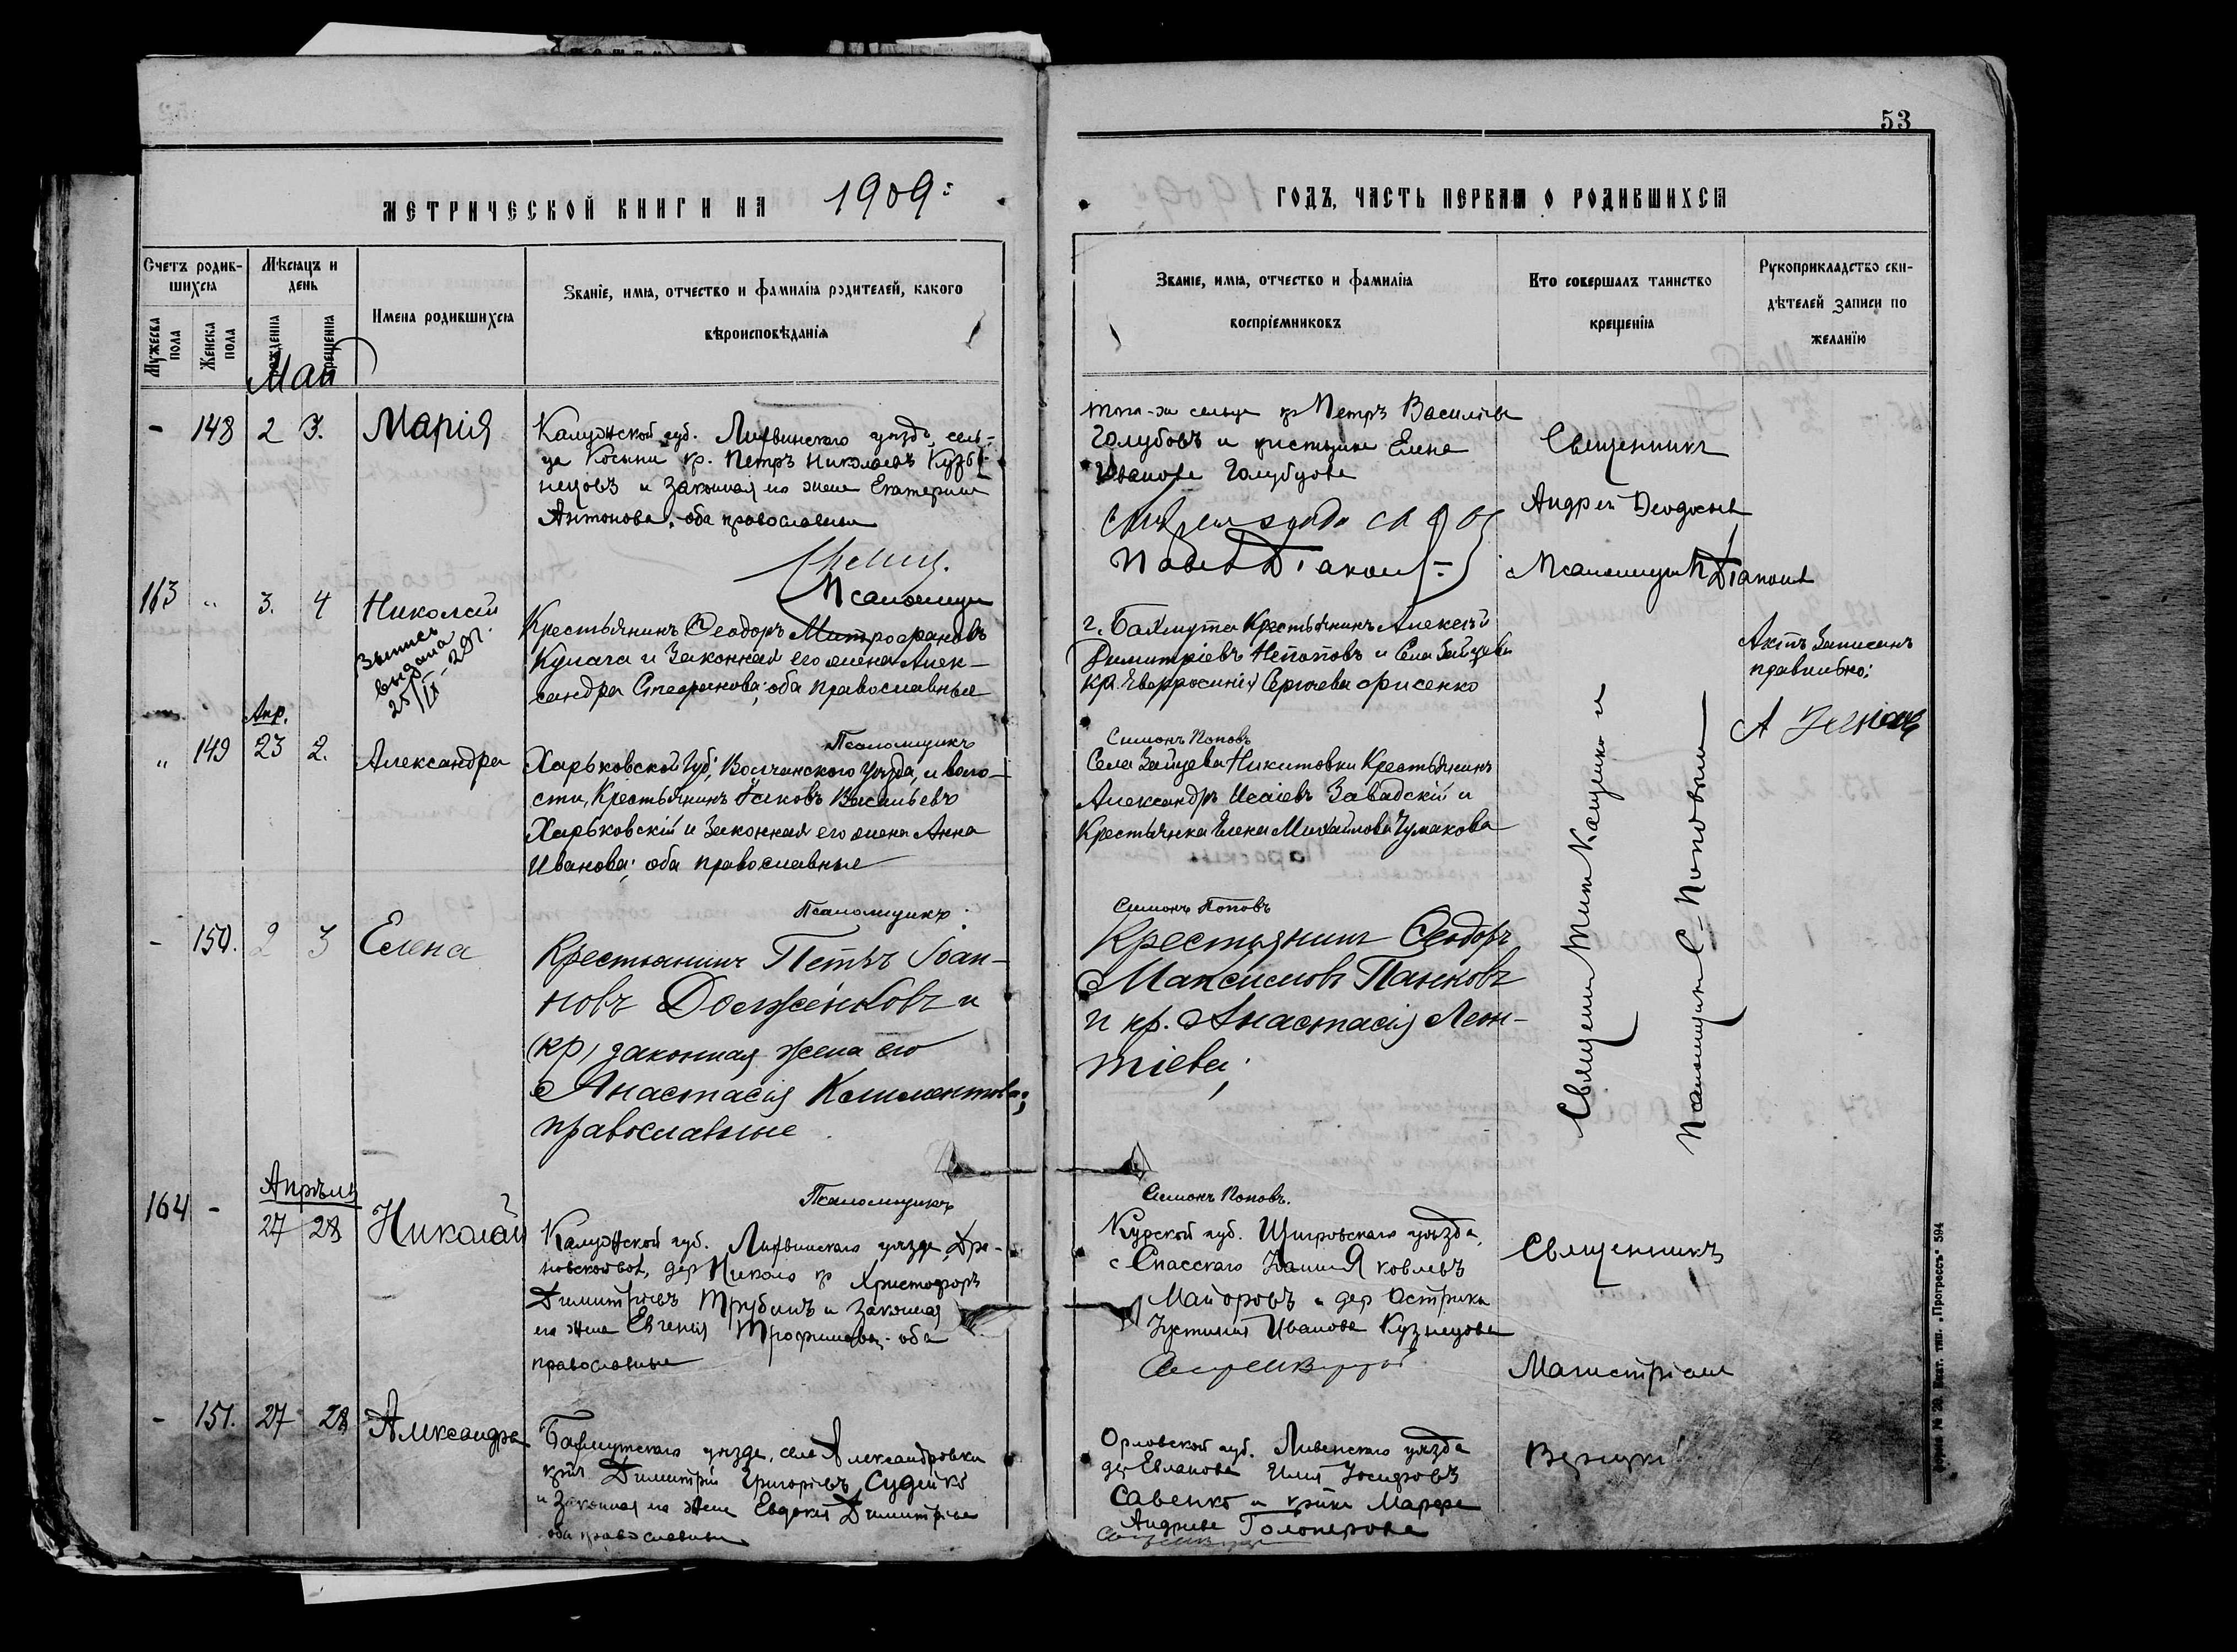 53
МЕТРИЧЕСКОЙ КНИГИ НА 1909
ГОДЪ, ЧАСТЬ ПЕРВАЯ О РОДИВШИХСЯ
Счетъ родив-
шихся
Мѣсяцъ и
день
Мужеска
пола
Женска
пола
рожденія
крещенія
Имена родившихся
Званіе, имя, отчество и фамилія родителей, какого
вѣроисповѣданія
Званіе, имя, отчество и фамилія
воспріемниковъ
Кто совершалъ таинство
крещенія
Рукоприкладство сви-
дѣтелей записи по
желанію
Май
- 148 2 3. Марія
Калужской губ. Лихвинскаго уѣзда, сель-
ца Косыни кр. Петръ Николаевъ Кузь-
нецовъ и законная его жена Екатерина
Антонова, оба православные
Псаломщик
того-же сельца кр Петръ Васильевъ
Голубовъ и крестьянка Елена
Иванова Голубцова
Павелъ Діаконовъ
Священникъ
Андрей Феодосьев
Псаломщик П Діаконов
163 " 3. 4 Николай
выдана
25/IX-29г.
Крестьянинъ Феодоръ Митрофановъ
Кулага и Законная его жена Алек-
сандра Стефанова; оба православные
Псаломщикъ
г. Бахмута Крестьянинъ Алексѣй
Димитріевъ Непоповъ и Села Зайцева
кр. Евфросинія Сергіева Фисенко
Симонъ Поповъ
Актъ Записанъ
правильно:
Апр.
" 149 23 2. Александра
Харьковской Губ, Волчанского Уѣзда, и воло-
сти, Крестьянинъ Яковъ Васильевъ
Харьковскій и Законная его жена Анна
Иванова; оба православные
Псаломщикъ
Села Зайцева Никитовки Крестьянинъ
Александръ Исаіевъ Завадскій и
Крестьянка Елена Михайлова Чумакова
Симонъ Поповъ
- 150. 2 3 Елена
Крестьянинъ Петръ Іоан-
новъ Долженковъ и
(кр) законная жена его
Анастасія Климентова;
православные
Псаломщикъ
Крестьянинъ Феодоръ
Максимовъ Панковъ
и кр. Анастасія Леон-
тіева;
Симонъ Поповъ.
Священник Тит Кащенко и
Псаломщик С. Поповым
Апрѣля
164 - 27 28 Николай
Калужской губ. Лихвинскаго уѣзда,
дер Николо кр Христофоръ
Димитріевъ Трубинъ и законная
его жена Евгенія Трофимова оба
православные
Курской губ. Щигровскаго уѣзда,
с Спасскаго Іоаннъ Яковлевъ
Майоровъ и дер Острики
Іустинія Иванова Кузнецова
Священникъ
- 151. 27 28 Александра
Бахмутскаго уѣзда, села Александровки
крнъ Димитрій Григорьевъ Судейко
и законная его жена Евдокія Димитріева
оба православные
Орловской губ. Ливенскаго уѣзда
дер Евланова Илія Іосифовъ
Савенко и крнка Марфа
Андреева Голоперова
Форма № 20 „Прогрессъ" 594